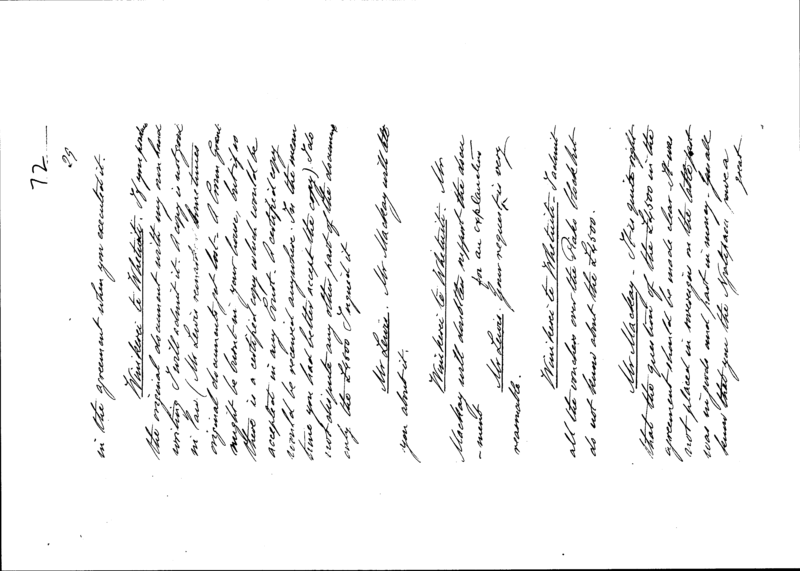 72
29
in the agreement when you executed it.
Wanikivi to Whetuite. If you produce
the original document with my own hand
writing I will admit it. A copy is not good
in law (Mr Lewis remarks. Sometimes
original documents get lost. A Crown Grant
might be burnt in your house, but if so
there is a certified copy which would be
accepted in any Court. A certified copy
would be received anywhere. In the mean
time you had better accept the copy) I do
not dispute any other part of the document
only the £4500 I signed it
Mr Lewis. Mr Mackay will tell
you about it.
Wanikivi to Whetuiti. Mr
Mackay will doubtless support the docu
-ment
for an explanation
Mr Lewis. Your request is very
reasonable.
Wanikivi to Whetuite. I admit
all the vouchers over the Piako Block but
do not know about the £4,500.
Mr Mackay - It is quite right
that the question of the £4,500 in the
agreement should be made clear. It was
not placed in survey in the latter part
was in goods and part in money. You all
know that you the Ngatipaoa gave a
great